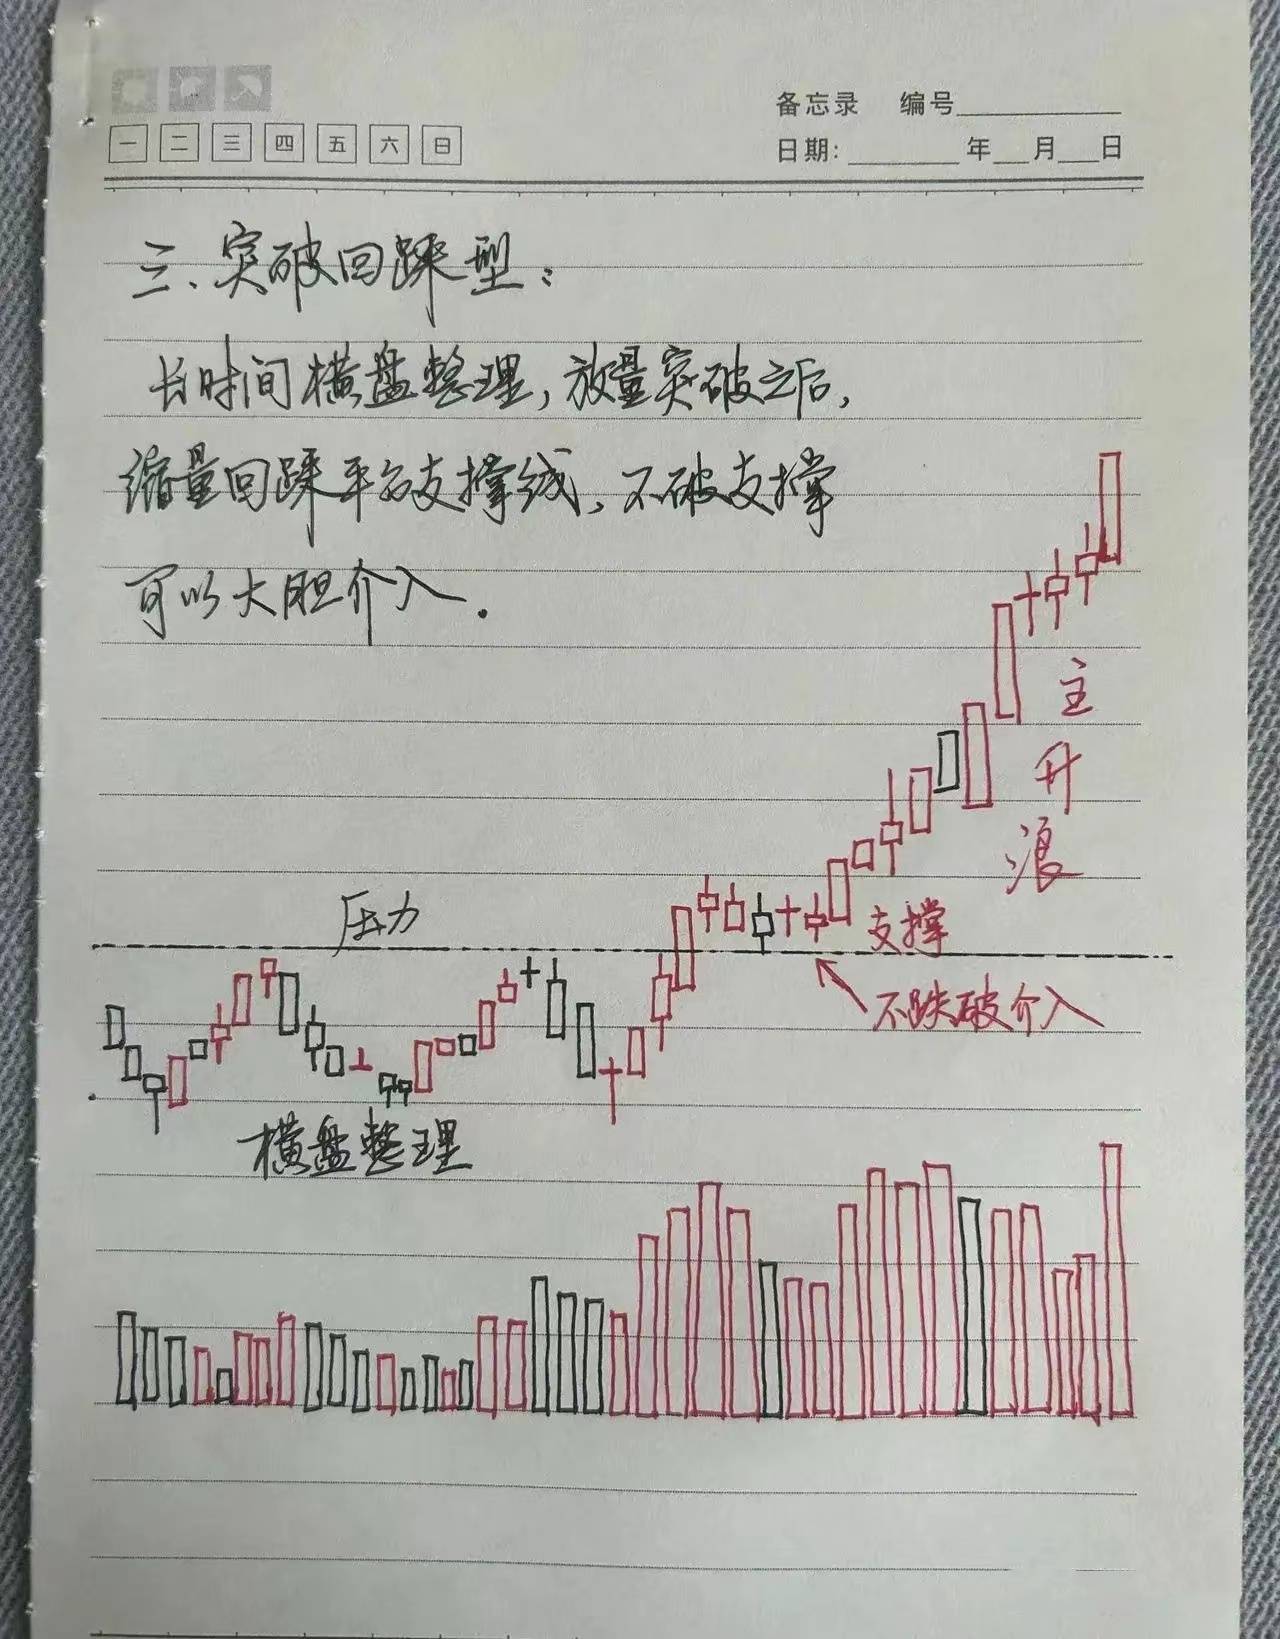 备忘录 编号
一 二 三 四 五 六 日
日期: 年 月 日
三、突破回踩型：
长时间横盘整理，放量突破之后，
缩量回踩平台支撑线、不破支撑
可以大胆介入.
主升浪
压力
支撑
不跌破介入
横盘整理